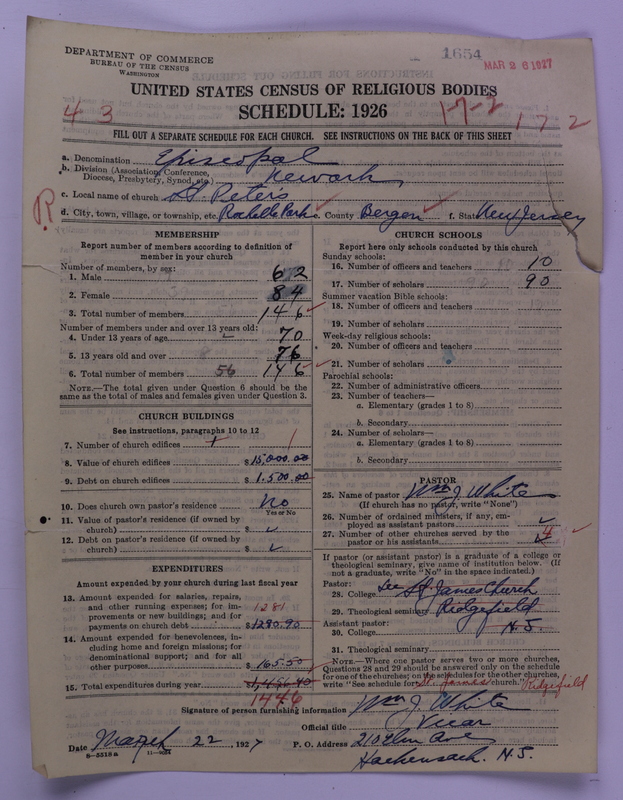 1654
MAR 26 1927
DEPARTMENT OF COMMERCE
BUREAU OF THE CENSUS
WASHINGTON
UNITED STATES CENSUS OF RELIGIOUS BODIES
SCHEDULE: 1926
43
1-7-2
172
FILL OUT A SEPARATE SCHEDULE FOR EACH CHURCH. SEE INSTRUCTIONS ON THE BACK OF THIS SHEET
a. Denomination Episcopal
b. Division (Association, Conference, Diocese, Presbytery, Synod, etc.) Newark
R
c. Local name of church St. Peter's
d. City, town, village, or township, etc. Rochelle Park e. County Bergen f. State New Jersey
MEMBERSHIP
Report number of members according to definition of
member in your church
Number of members, by sex:
1. Male 62
2. Female 84
3. Total number of members 146
Number of members under and over 13 years old:
4. Under 13 years of age 70
5. 13 years old and over 76
6. Total number of members 56 146
NOTE.—The total given under Question 6 should be
same as the total of males and females given under Question 3.
CHURCH BUILDINGS
See instructions, paragraphs 10 to 12
7. Number of church edifices 1
8. Value of church edifices $15,000.00
9. Debt on church edifices $1.500.00
10. Does church own pastor's residence? No
Yes or No
11. Value of pastor's residence (if owned by
church) $
12. Debt on pastor's residence (if owned by
church) $
EXPENDITURES
Amount expended by your church during last fiscal year
13. Amount expended for salaries, repairs,
and other running expenses; for im-
provements or new buildings; and for
payments on church debt 1281 $1280.90
14. Amount expended for benevolences, in-
cluding home and foreign missions; for
denominational support; and for all
other purposes $165.50
15. Total expenditures during year $1,446.40
1446
CHURCH SCHOOLS
Report here only schools conducted by this church
Sunday schools:
16. Number of officers and teachers 10
17. Number of scholars 90
Summer vacation Bible schools:
18. Number of officers and teachers
19. Number of scholars
Week-day religious schools:
20. Number of officers and teachers
21. Number of scholars
Parochial schools:
22. Number of administrative officers
23. Number of teachers—
a. Elementary (grades 1 to 8)
b. Secondary
24. Number of scholars—
a. Elementary (grades 1 to 8)
b. Secondary
PASTOR
25. Name of pastor Wm J. White
(If church has no pastor, write "None")
26. Number of ordained ministers, if any, em-
ployed as assistant pastors
27. Number of other churches served by the
pastor or his assistants 4
If pastor (or assistant pastor) is a graduate of a college or
theological seminary, give name of institution below. (If
not a graduate, write "No" in the space indicated.)
Pastor:
28. College See St. James Church
29. Theological seminary Ridgefield
Assistant pastor:
30. College N.J.
31. Theological seminary
NOTE.—Where one pastor serves two or more churches,
Questions 28 and 29 should be answered only on the schedule
for one of the churches; on the schedules for the other churches,
write "See schedule for St. James church." Ridgefield
Signature of person furnishing information Wm J. White
Official title Vicar
Date March 22, 1927 P. O. Address 210 Elm Ave
Hackensack. N.J.
8-5518a